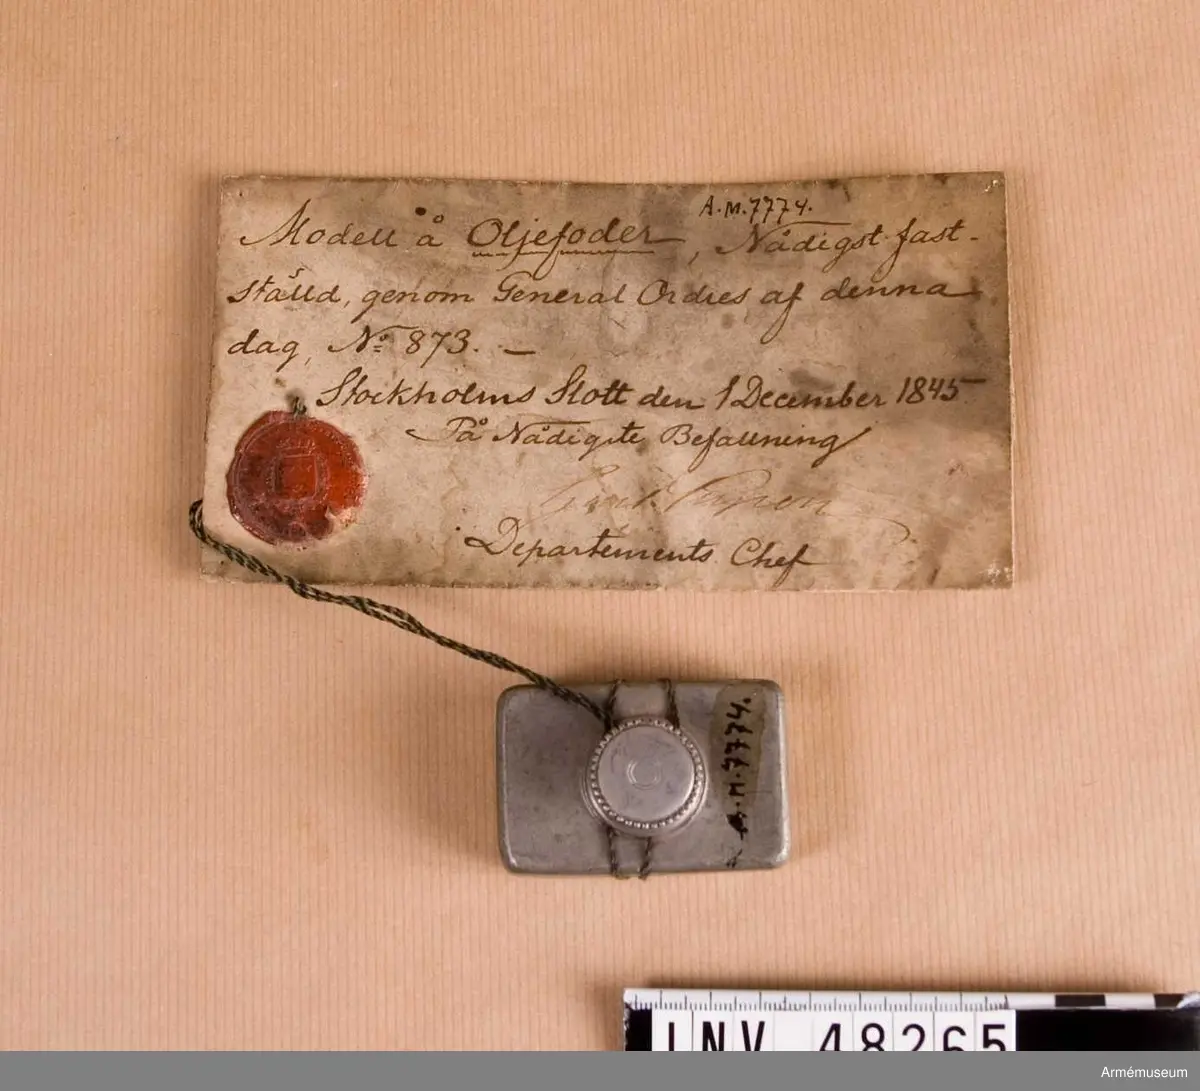 A.M.7774.
Modell å Oljefoder, Nådigst fast-
ställd, genom General Ordres af denna
dag, No 873. —
Stockholms Slott den 1 December 1845
På Nådigste Befallning
Departements Chef
A.M.7774.
INV 48265
Armémuseum